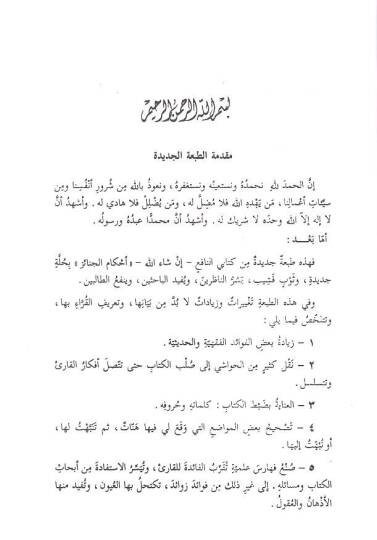 بسم الله الرحمن الرحيم
مقدمة الطبعة الجديدة
إنَّ الحمدَ للهِ نحمدُهُ ونستعينُه ونستغفرُه، ونعوذُ بالله مِن شُرورِ أنفُسِنا ومِن
سيِّئاتِ أعمالِنا، مَن يَهْدِهِ الله فلا مُضِلَّ له، ومَن يُضْلِلْ فلا هادي له. وأشهدُ أنَّ
لا إله إلاَّ الله وحدَه لا شريك له. وأشهدُ أنَّ محمدًا عبدُهُ ورسولُه.
أمّا بَعْـد:
فهذه طبعةٌ جديدةٌ مِن كتابي النافعِ - إنْ شاءَ الله - «أحكام الجنائز» بحُلَّةٍ
جديدةٍ، وثَوْبٍ قَشِيبٍ، يَسُرُّ الناظرينَ، ويُفيد الباحثين، وينفعُ الطالبين.
وفي هذه الطبعةِ تَغييراتٌ وزياداتٌ لا بُدَّ مِن بَيَانِها، وتعريفِ القُرَّاءِ بها،
وتتلخَّصُ فيما يلي:
١ - زيادةُ بعضِ الفوائد الفقهيَّة والحديثية.
٢ - نَقْل كثيرٍ مِن الحواشي إلى صُلْب الكتابِ حتى تتَّصل أفكار القارئِ
وتتسلسل.
٣ - العنايةُ بضَبْطِ الكتاب: كلماتِه وحُروفِه.
٤ - تَصْحيحُ بعضِ المواضعِ التي وَقَعَ لي فيها هَنَاتٌ، ثم تَنَبَّهْتُ لها،
أو نُبِّهْتُ إليها.
٥ - صُنْعُ فهارسَ علميَّةٍ تُقَرِّبُ الفائدةَ للقارئِ، وتُيَسِّرُ الاستفادةَ مِن أبحاثِ
الكتاب ومسائلِه. إلى غيرِ ذلك مِن فوائدَ زوائد، تكتحلُ بها العُيون، وتُفيد منها
الأذهانُ والعُقولُ.